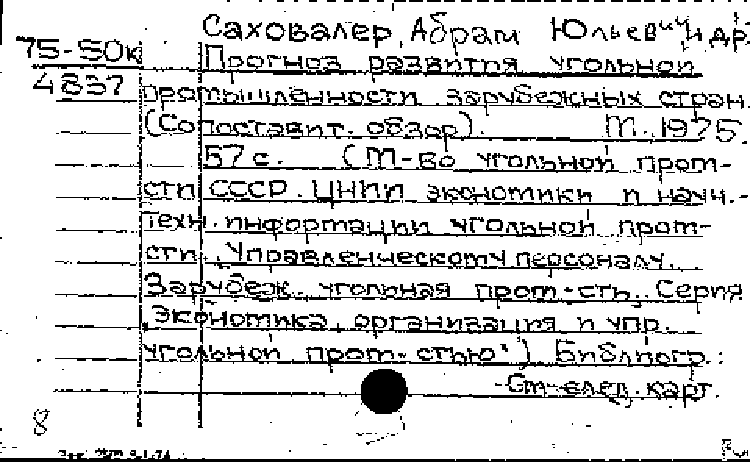 Саховалер, Абрам Юльевич и др.
75-50к Прогноз развития угольной
4837 промышленности зарубежных стран.
(Сопоставит. обзор). М., 1975.
57 с. (М-во угольной пром-
сти СССР. ЦНИИ экономики и науч.-
техн. информации угольной пром-
сти. „Управленческому персоналу.
Зарубеж. угольная пром-сть. Серия
„Экономика, организация и упр.
угольной пром-стью") Библиогр.:
См. след. карт.
8